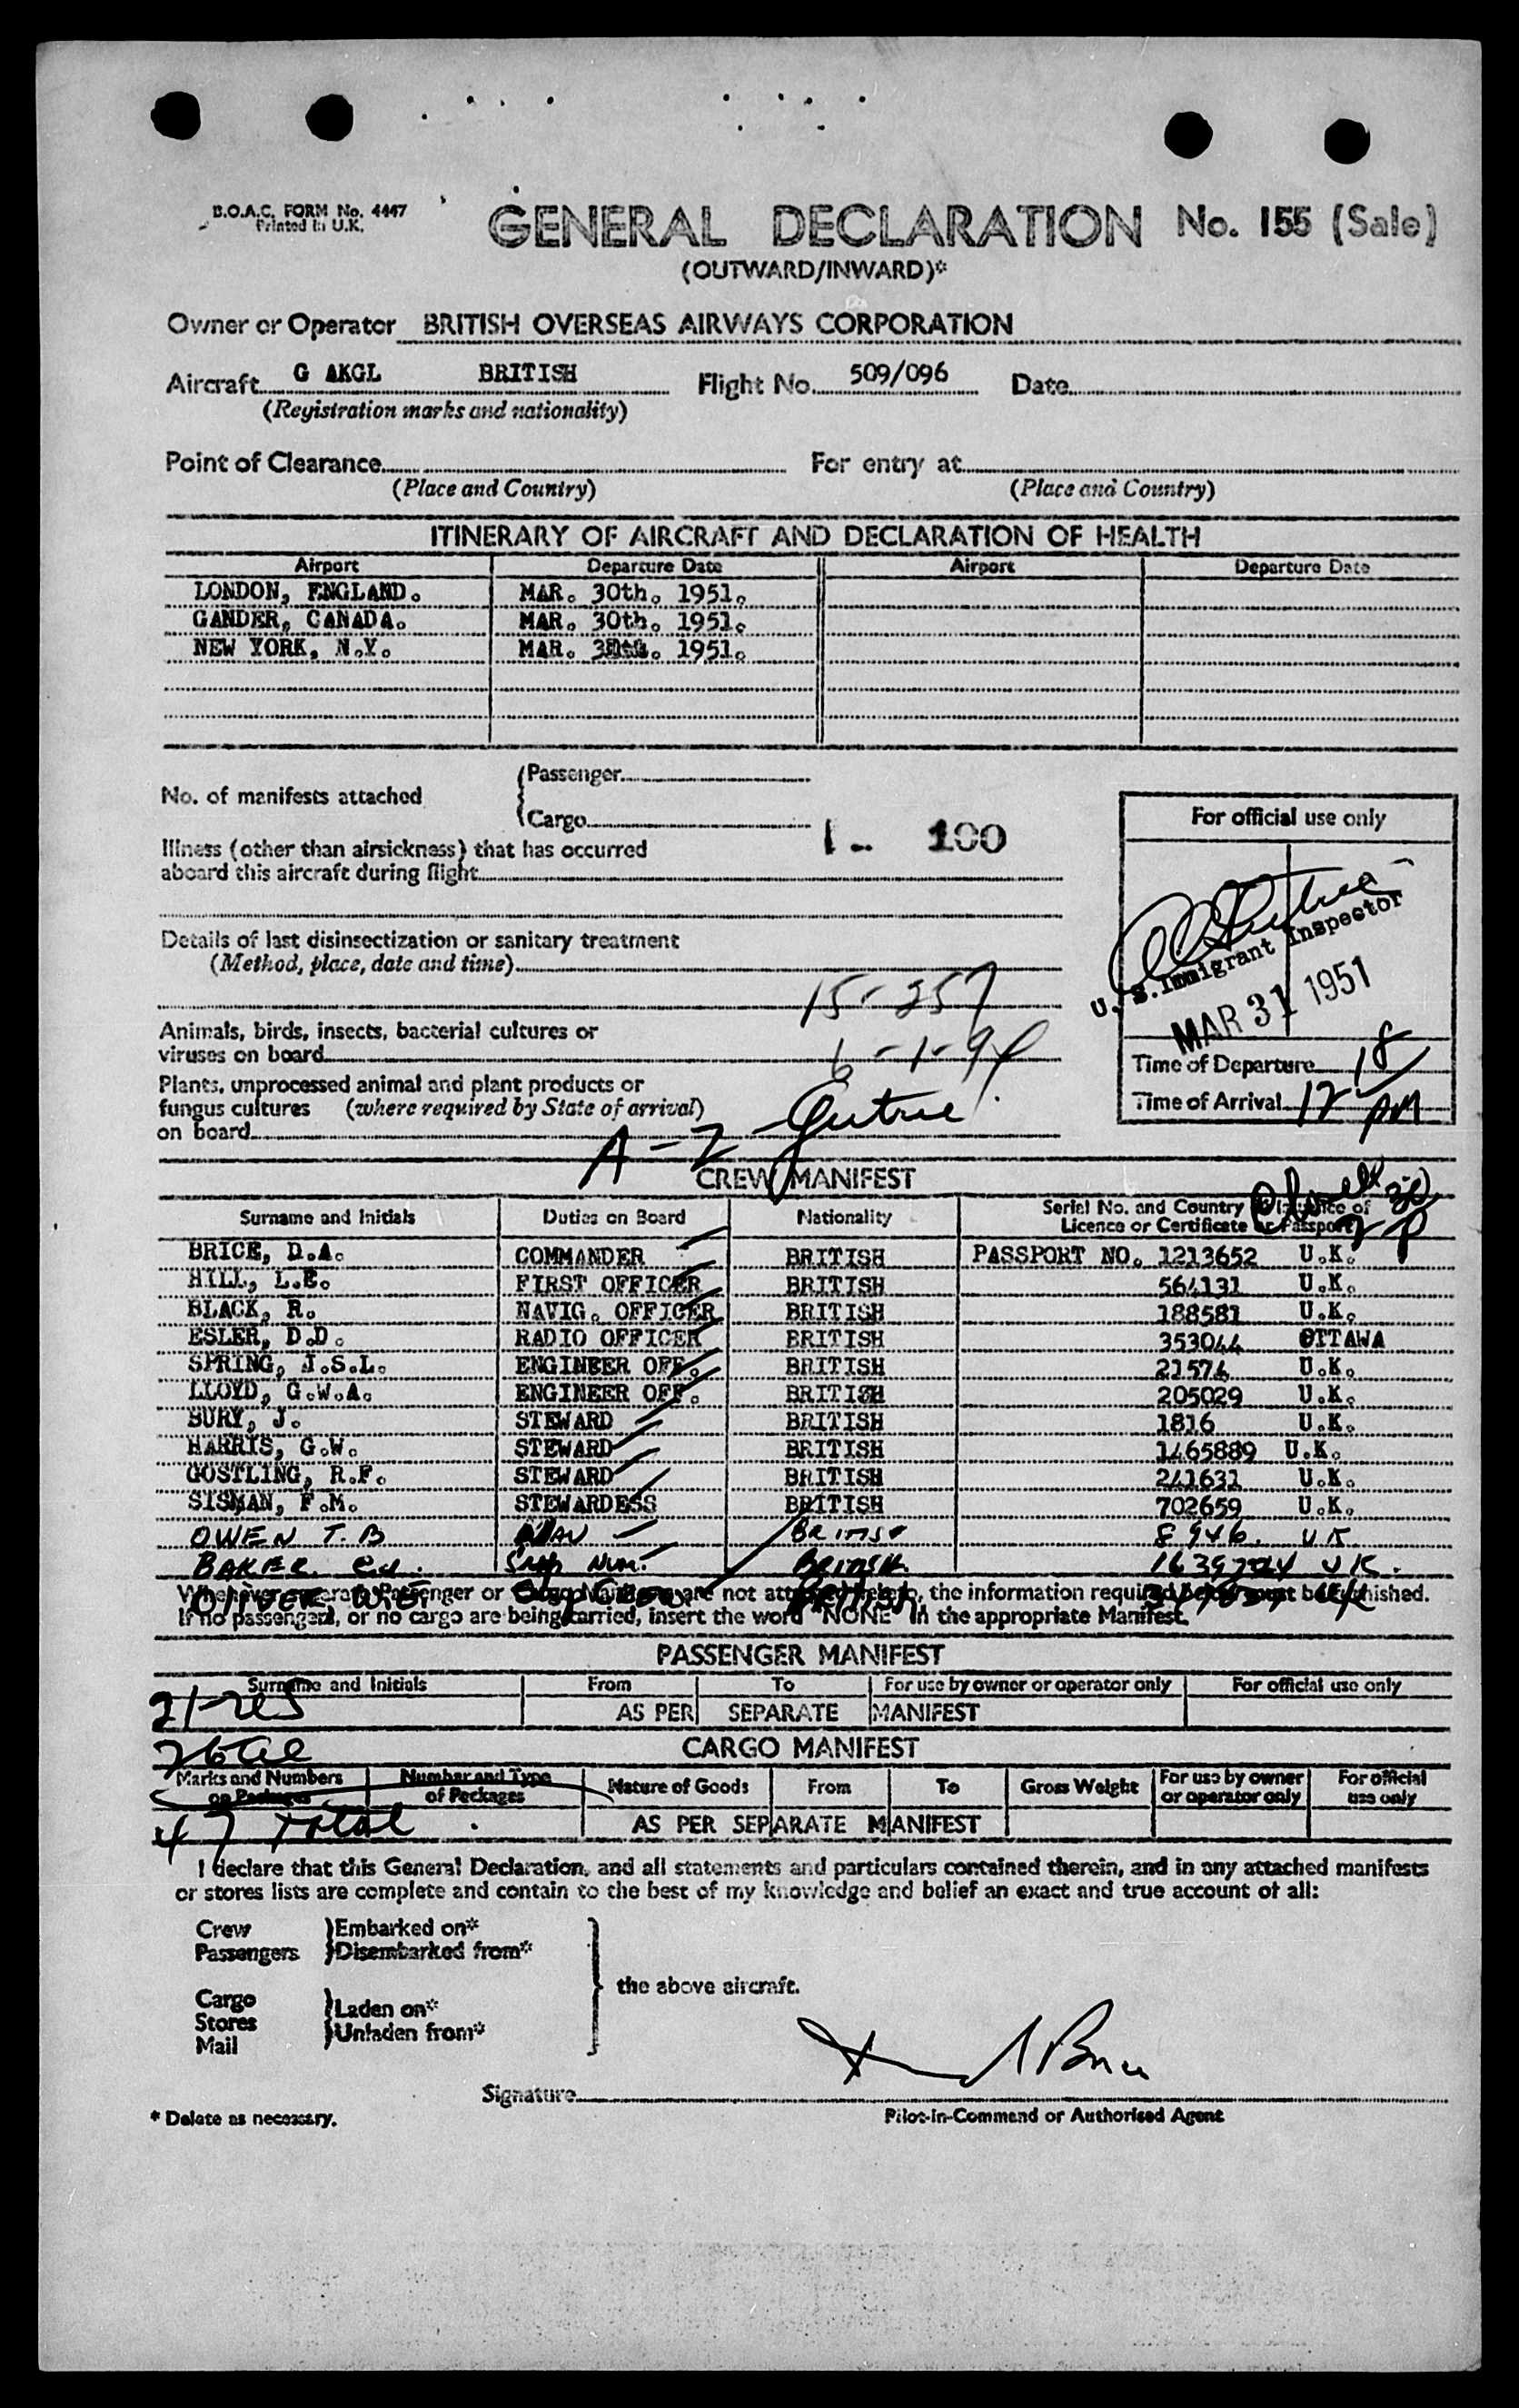 B.O.A.C. FORM No. 4447
Printed in U.K.
GENERAL DECLARATION No. 155 (Sale)
(OUTWARD/INWARD)*
Owner or Operator BRITISH OVERSEAS AIRWAYS CORPORATION
Aircraft G AKGL BRITISH Flight No. 509/096 Date
(Registration marks and nationality)
Point of Clearance For entry at
(Place and Country) (Place and Country)
ITINERARY OF AIRCRAFT AND DECLARATION OF HEALTH
Airport Departure Date Airport Departure Date
LONDON, ENGLAND. MAR. 30th. 1951.
GANDER, CANADA. MAR. 30th. 1951.
NEW YORK, N.Y. MAR. 1951.
No. of manifests attached
Passenger
Cargo
1 - 100
Illness (other than airsickness) that has occurred
aboard this aircraft during flight
Details of last disinsectization or sanitary treatment
(Method, place, date and time)
15-257
Animals, birds, insects, bacterial cultures or
viruses on board
Plants, unprocessed animal and plant products or
fungus cultures (where required by State of arrival)
on board
A-2
For official use only
U.S. Immigrant Inspector
MAR 31 1951
Time of Departure 18
Time of Arrival 12 PM
CREW MANIFEST
Surname and Initials Duties on Board Nationality Serial No. and Country of Issuance of
Licence or Certificate or Passport
BRICE, D.A. COMMANDER BRITISH PASSPORT NO. 1213652 U.K.
HILL, L.E. FIRST OFFICER BRITISH 564131 U.K.
BLACK, R. NAVIG. OFFICER BRITISH 188581 U.K.
ESLER, D.D. RADIO OFFICER BRITISH 353044 OTTAWA
SPRING, J.S.L. ENGINEER OFF. BRITISH 21574 U.K.
LLOYD, G.W.A. ENGINEER OFF. BRITISH 205029 U.K.
BURY, J. STEWARD BRITISH 1816 U.K.
HARRIS, G.W. STEWARD BRITISH 1465889 U.K.
GOSTLING, R.F. STEWARD BRITISH 241631 U.K.
SISMAN, F.M. STEWARDESS BRITISH 702659 U.K.
OWEN T. B NAV BRITISH 8946. UK
BAKER BRITISH UK.
OLIVER, W.E. BRITISH UK
Whenever separate Passenger or Cargo Manifests are not attached hereto, the information required below must be furnished.
If no passengers, or no cargo are being carried, insert the word "NONE" in the appropriate Manifest.
PASSENGER MANIFEST
Surname and Initials From To For use by owner or operator only For official use only
AS PER SEPARATE MANIFEST
21-
26
CARGO MANIFEST
Marks and Numbers on Packages Number and Type of Packages Nature of Goods From To Gross Weight For use by owner or operator only For official use only
47 Total
AS PER SEPARATE MANIFEST
I declare that this General Declaration, and all statements and particulars contained therein, and in any attached manifests
or stores lists are complete and contain to the best of my knowledge and belief an exact and true account of all:
Crew Embarked on*
Passengers Disembarked from*
the above aircraft.
Cargo Laden on*
Stores Unladen from*
Mail
Signature
* Delete as necessary. Pilot-in-Command or Authorised Agent